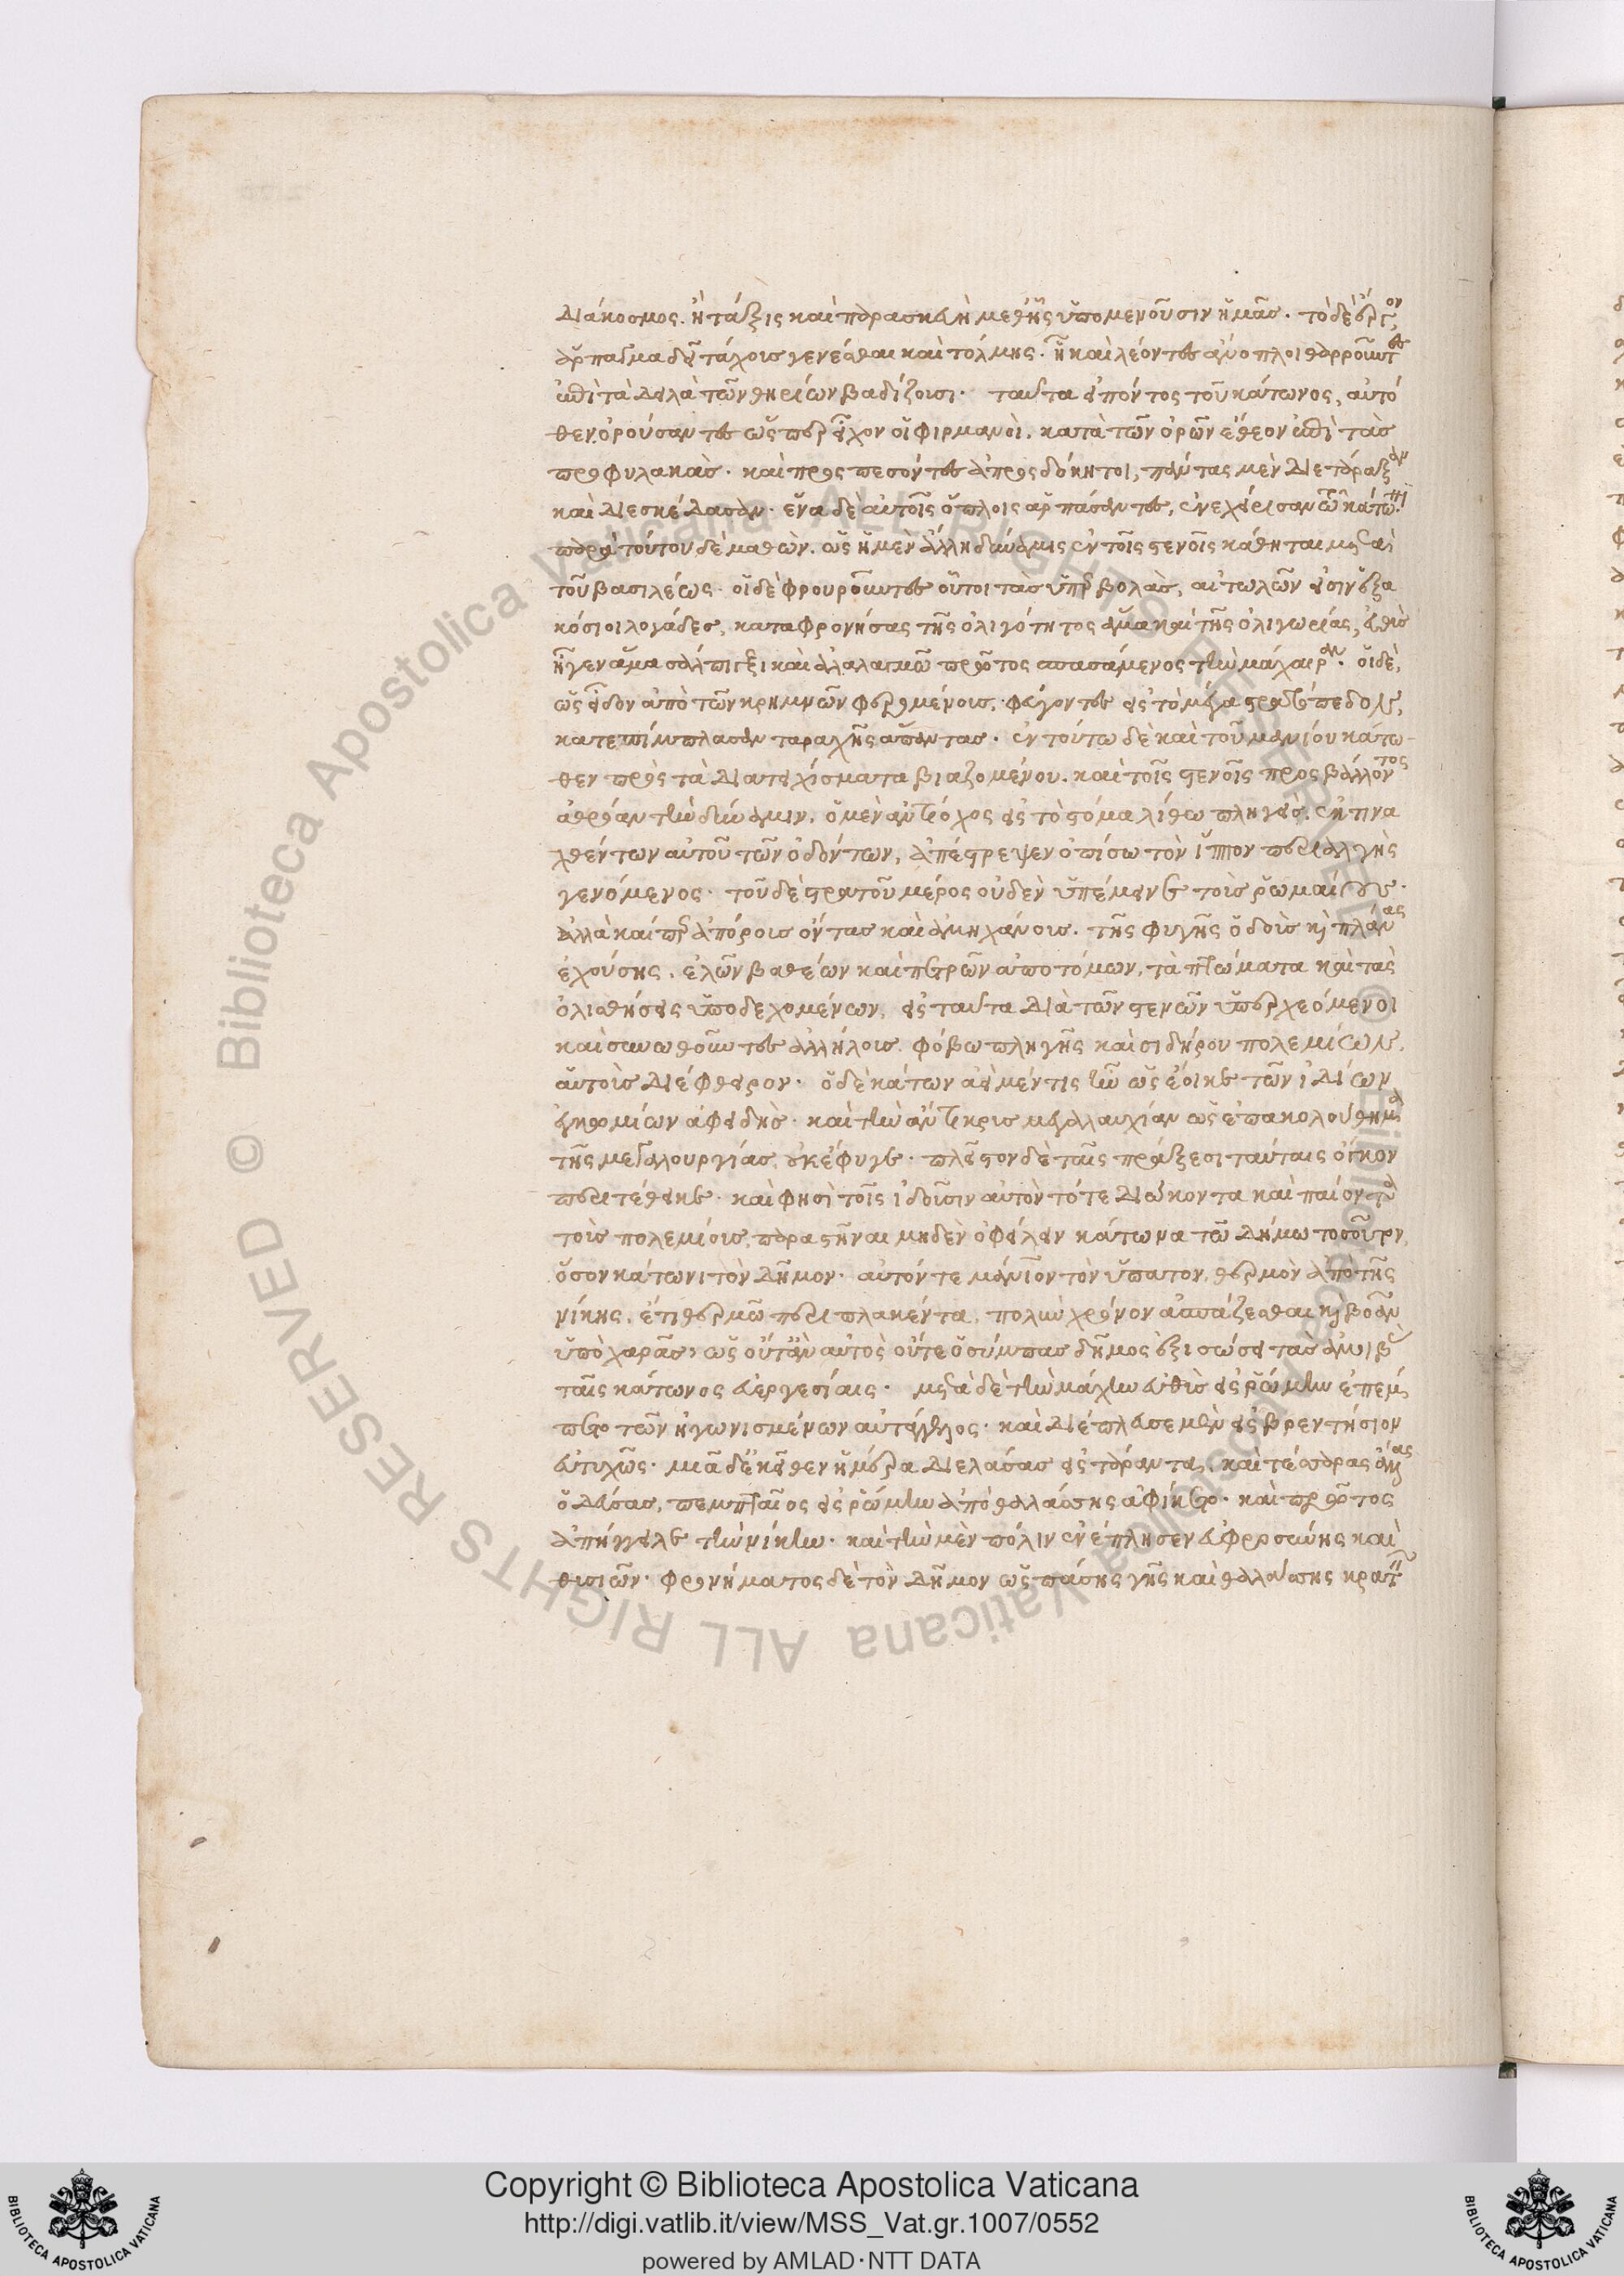 διάκοσμος. ἢ τάξις καὶ παρασκευὴ μεθ' ἧς ὑπομένουσιν ἡμᾶς. τὸ δὲ ἔργον
ἅρπασμα δεῖ τάχους γενέσθαι καὶ τόλμης. ᾗ καὶ λέοντες ἄνοπλοι θαρροῦντες
ἐπὶ τὰ δειλὰ τῶν θηρίων βαδίζουσι. ταῦτα εἰπόντος τοῦ κάτωνος, αὐτό
θεν ὀρούσαντες ὥσπερ εἶχον οἱ φιρμανοὶ. κατὰ τῶν ὀρῶν ἔθεον ἐπὶ τὰς
προφυλακὰς. καὶ προσπεσόντες ἀπροσδόκητοι, πάντας μὲν διετάραξαν
καὶ διεσκέδασαν. ἕνα δὲ αὐτοῖς ὅπλοις ἁρπάσαντες, ἐνεχείρισαν τῷ κάτωνι.
παρὰ τούτου δὲ μαθὼν. ὡς ἡ μὲν ἄλλη δύναμις ἐν τοῖς στενοῖς κάθηται μετὰ
τοῦ βασιλέως. οἱ δὲ φρουροῦντες οὗτοι τὰς ὑπερβολὰς, αἰτωλῶν εἰσὶν ἑξα
κόσιοι λογάδες, καταφρονήσας τῆς ὀλιγότητος ἅμα καὶ τῆς ὀλιγωρίας, εὐθὺς
ἦγεν ἅμα σάλπιγξι καὶ ἀλαλαγμῷ πρῶτος σπασάμενος τὴν μάχαιραν. οἱ δὲ,
ὡς εἶδον ἀπὸ τῶν κρημνῶν φερομένους, φεύγοντες εἰς τὸ μέγα στρατόπεδον,
κατεπίμπλασαν ταραχῆς ἅπαντας. ἐν τούτω δὲ καὶ τοῦ μανίου κάτω
θεν πρὸς τὰ διατειχίσματα βιαζομένου. καὶ τοῖς στενοῖς προσβάλλοντος
ἀθρόαν τὴν δύναμιν, ὁ μὲν ἀντίοχος εἰς τὸ στόμα λίθω πληγεὶς. ἐκτινα
χθέντων αὐτοῦ τῶν ὀδόντων, ἀπέστρεψεν ὀπίσω τὸν ἵππον περιαλγὴς
γενόμενος. τοῦ δὲ στρατοῦ μέρος οὐδὲν ὑπέμεινε τοὺς ῥωμαίους.
ἀλλὰ καίπερ ἀπόρους ὄντας καὶ ἀμηχάνους. τῆς φυγῆς ὁδοὺς καὶ πλάνας
ἐχούσης. ἑλῶν βαθέων καὶ πετρῶν ἀποτόμων, τὰ πτώματα καὶ τὰς
ὀλισθήσεις ὑποδεχομένων, εἰς ταῦτα διὰ τῶν στενῶν ὑπερχεόμενοι
καὶ συνωθοῦντες ἀλλήλους. φόβω πληγῆς καὶ σιδήρου πολεμίων,
αὑτοὺς διέφθειρον. ὁ δὲ κάτων ἀεὶ μέν τις ἦν ὡς ἔοικε τῶν ἰδίων
ἐγκωμίων ἀφειδὴς. καὶ τὴν ἄντικρις μεγαλαυχίαν ὡς ἐπακολούθημα
τῆς μεγαλουργίας, οὐκ ἔφυγε. πλεῖστον δὲ ταῖς πράξεσι ταύταις ὄγκον
περιτέθεικε. καὶ φησὶ τοῖς ἰδοῦσιν αὐτὸν τότε διώκοντα καὶ παίοντα
τοὺς πολεμίους, παραστῆναι μηδὲν ὀφείλειν κάτωνα τῷ δήμω τοσοῦτον,
ὅσον κάτωνι τὸν δῆμον. αὐτόν τε μάνιον τὸν ὕπατον, θερμὸν ἀπὸ τῆς
νίκης. ἔτι θερμῷ περιπλακέντα, πολὺν χρόνον ἀσπάζεσθαι καὶ βοᾶν
ὑπὸ χαρᾶς, ὡς οὔτ' ἂν αὐτὸς οὔτε ὁ σύμπας δῆμος ἐξισώσει τὰς ἀμοιβὰς
ταῖς κάτωνος εὐεργεσίαις. μετὰ δὲ τὴν μάχην εὐθὺς εἰς ῥώμην ἐπέμ
πετο τῶν ἠγωνισμένων αὐτάγγελος. καὶ διέπλευσε μὲν εἰς βρεντήσιον
εὐτυχῶς. μιᾷ δ' ἐκεῖθεν ἡμέρα διελάσας εἰς τάραντα. καὶ τέσσαρας ἄλλας
ὁδεύσας, πεμπταῖος εἰς ῥώμην ἀπὸ θαλάσσης ἀφίκετο. καὶ πρῶτος
ἀπήγγειλε τὴν νίκην. καὶ τὴν μὲν πόλιν ἐνέπλησεν εὐφροσύνης καὶ
θυσιῶν. φρονήματος δὲ τὸν δῆμον ὡς πάσης γῆς καὶ θαλάσσης κρατεῖν
Copyright © Biblioteca Apostolica Vaticana
http://digi.vatlib.it/view/MSS_Vat.gr.1007/0552
powered by AMLAD·NTT DATA
BIBLIOTECA APOSTOLICA VATICANA
BIBLIOTECA APOSTOLICA VATICANA
© Biblioteca Apostolica Vaticana ALL RIGHTS RESERVED
© Biblioteca Apostolica Vaticana ALL RIGHTS RESERVED